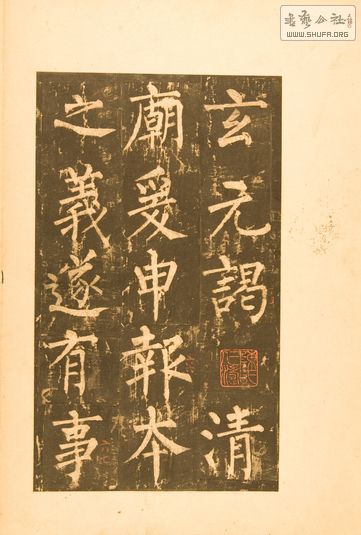 玄元謁清
廟爰申報本
之義遂有事
書藝公社
WWW.SHUFA.ORG